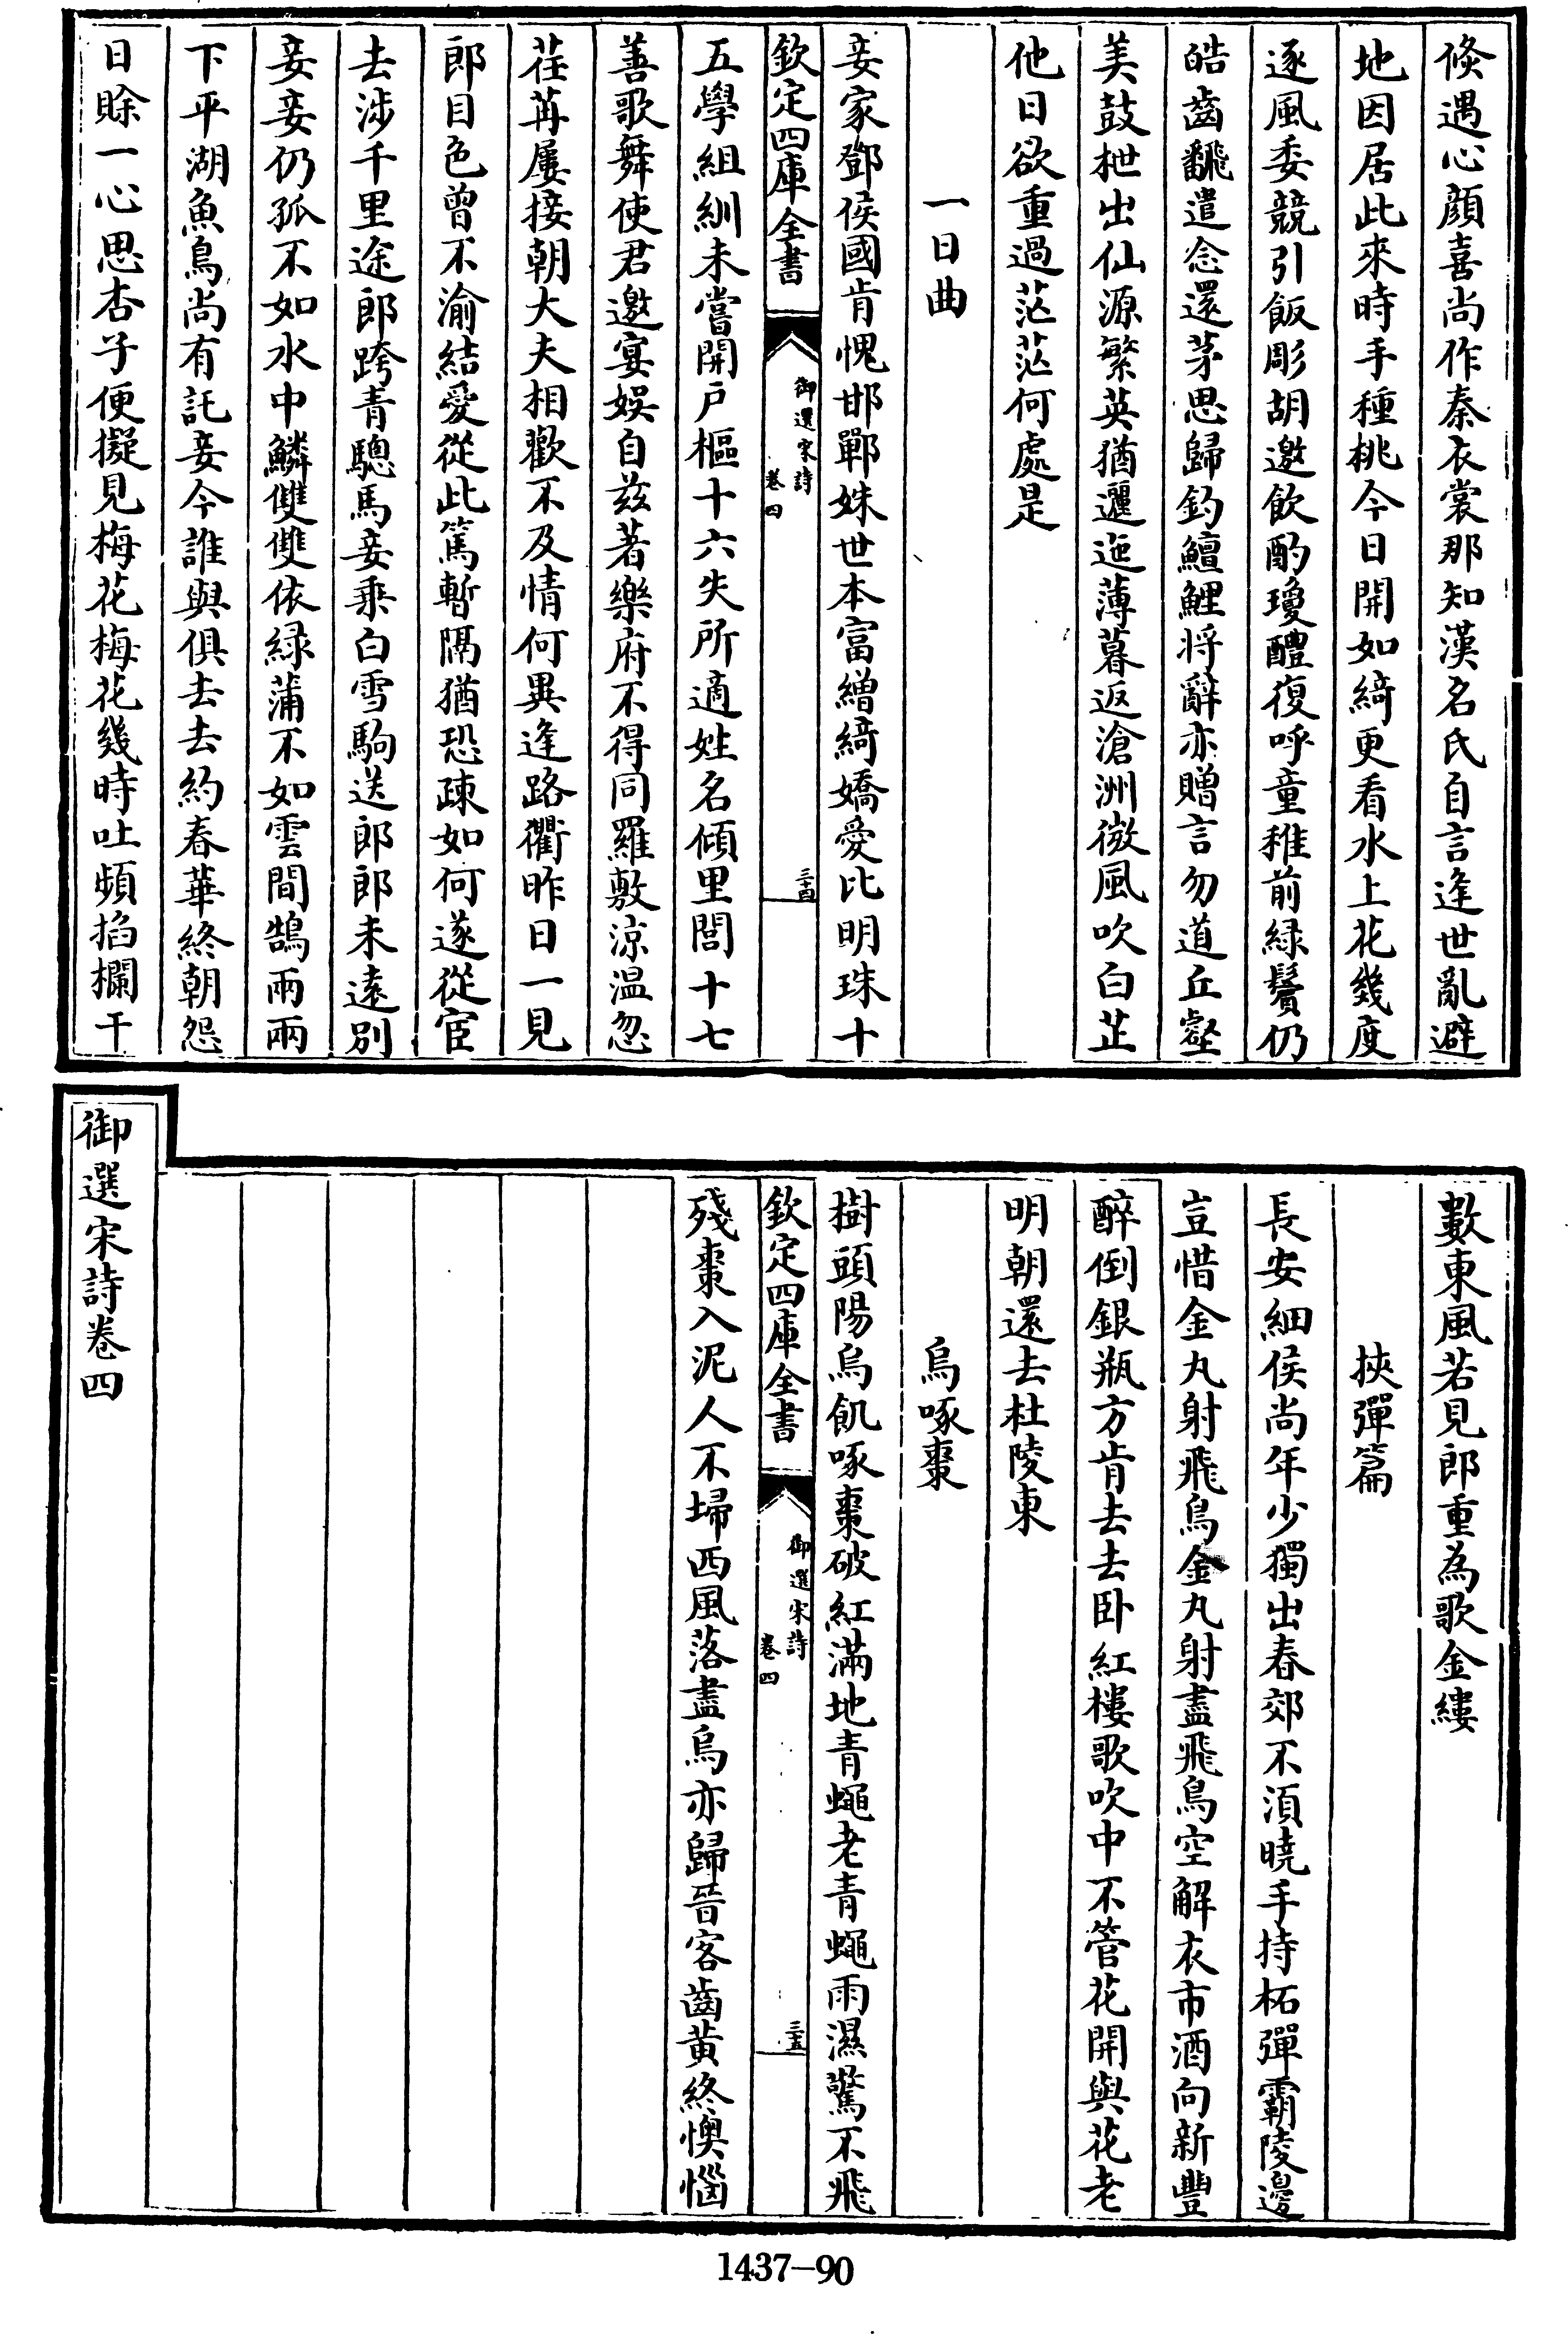 倐遇心顔喜尚作秦衣裳那知漢名氏自言逢世亂避
地因居此來時手種桃今日開如綺更看水上花幾度
逐風委競引飯彫胡邀飲酌瓊醴復呼童稚前緑鬢仍
皓齒飜遣念還茅思歸釣鱣鯉将辭亦贈言勿道丘壑
美鼓枻出仙源繁英猶邐迤薄暮返滄洲微風吹白芷
他日欲重過茫茫何處是
一日曲
妾家鄧侯國肯愧邯鄲姝世本富繒綺嬌愛比明珠十
欽定四庫全書
御選宋詩
卷四
三十四
五學組紃未嘗開戸樞十六失所適姓名傾里閭十七
善歌舞使君邀宴娛自兹著樂府不得同羅敷涼温忽
荏苒屢接朝大夫相歡不及情何異逢路衢昨日一見
郎目色曾不渝結愛從此篤暫隔猶恐疎如何遂從宦
去涉千里途郎跨青驄馬妾乘白雪駒送郎郎未遠別
妾妾仍孤不如水中鱗雙雙依緑蒲不如雲間鵠兩兩
下平湖魚鳥尚有託妾今誰與俱去去約春華終朝怨
日賖一心思杏子便擬見梅花梅花幾時吐頻掐欄干
數東風若見郎重為歌金縷
挾彈篇
長安細侯尚年少獨出春郊不湏曉手持柘彈霸陵邊
豈惜金丸射飛鳥金丸射盡飛鳥空解衣市酒向新豐
醉倒銀瓶方肯去去卧紅樓歌吹中不管花開與花老
明朝還去杜陵東
烏啄棗
樹頭陽烏飢啄棗破紅滿地青蠅老青蠅雨濕驚不飛
欽定四庫全書
御選宋詩
卷四
三十五
殘棗入泥人不埽西風落盡烏亦歸晉客齒黄終懊惱
御選宋詩卷四
1437-90